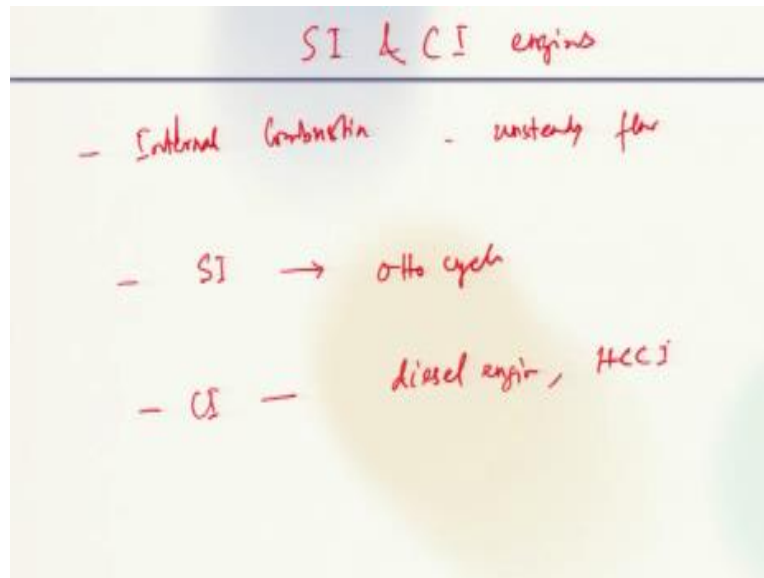 SI & CI engines
- Internal Combustion - unsteady flow
- SI → otto cycle
- CI - diesel engin, HCCI